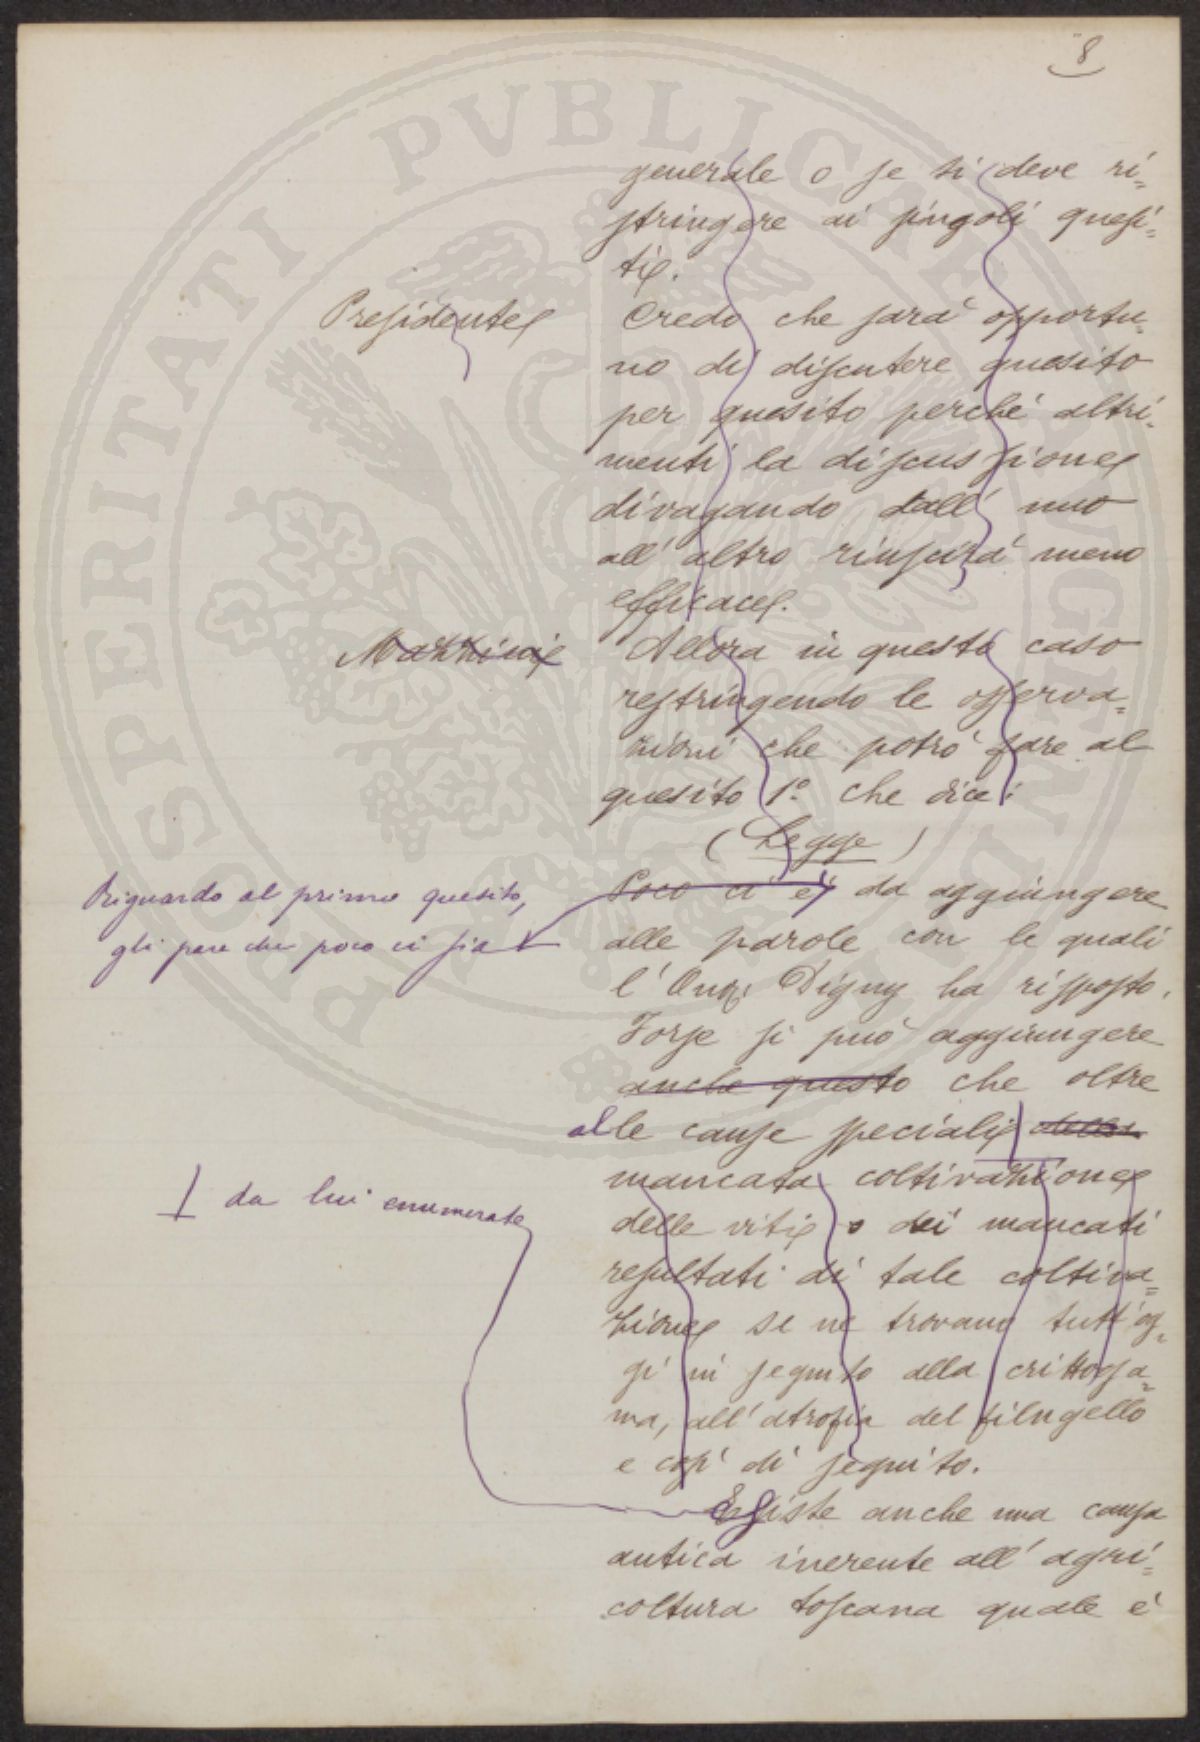 8
generale o se si deve ri=
stringere ai singoli quesi=
ti.
Presidente
Credo che sarà opportu=
no di discutere quesito
per quesito perché altri=
menti la discussione
divagando dall' uno
all' altro riuscirà meno
efficace.
Mazzini
Allora in questo caso
restringendo le osserva=
zioni che potrò fare al
quesito 1º che dice:
(Legge)
Riguardo al primo quesito,
gli pare che poco ci sia
Poco ci è da aggiungere
alle parole con le quali
l' Onor. Digny ha risposto.
Forse si può aggiungere
anche questo che oltre
alle cause speciali della
da lui enumerate
mancata coltivazione
delle viti o dei mancati
resultati di tale coltiva=
zione se ne trovano tutt' og=
gi in seguito alla crittoga=
ma, all' atrofia del filugello
e così di seguito.
Esiste anche una causa
antica inerente all' agri=
coltura toscana quale è
PROSPERITATI PVBLICAE AVGENDAE